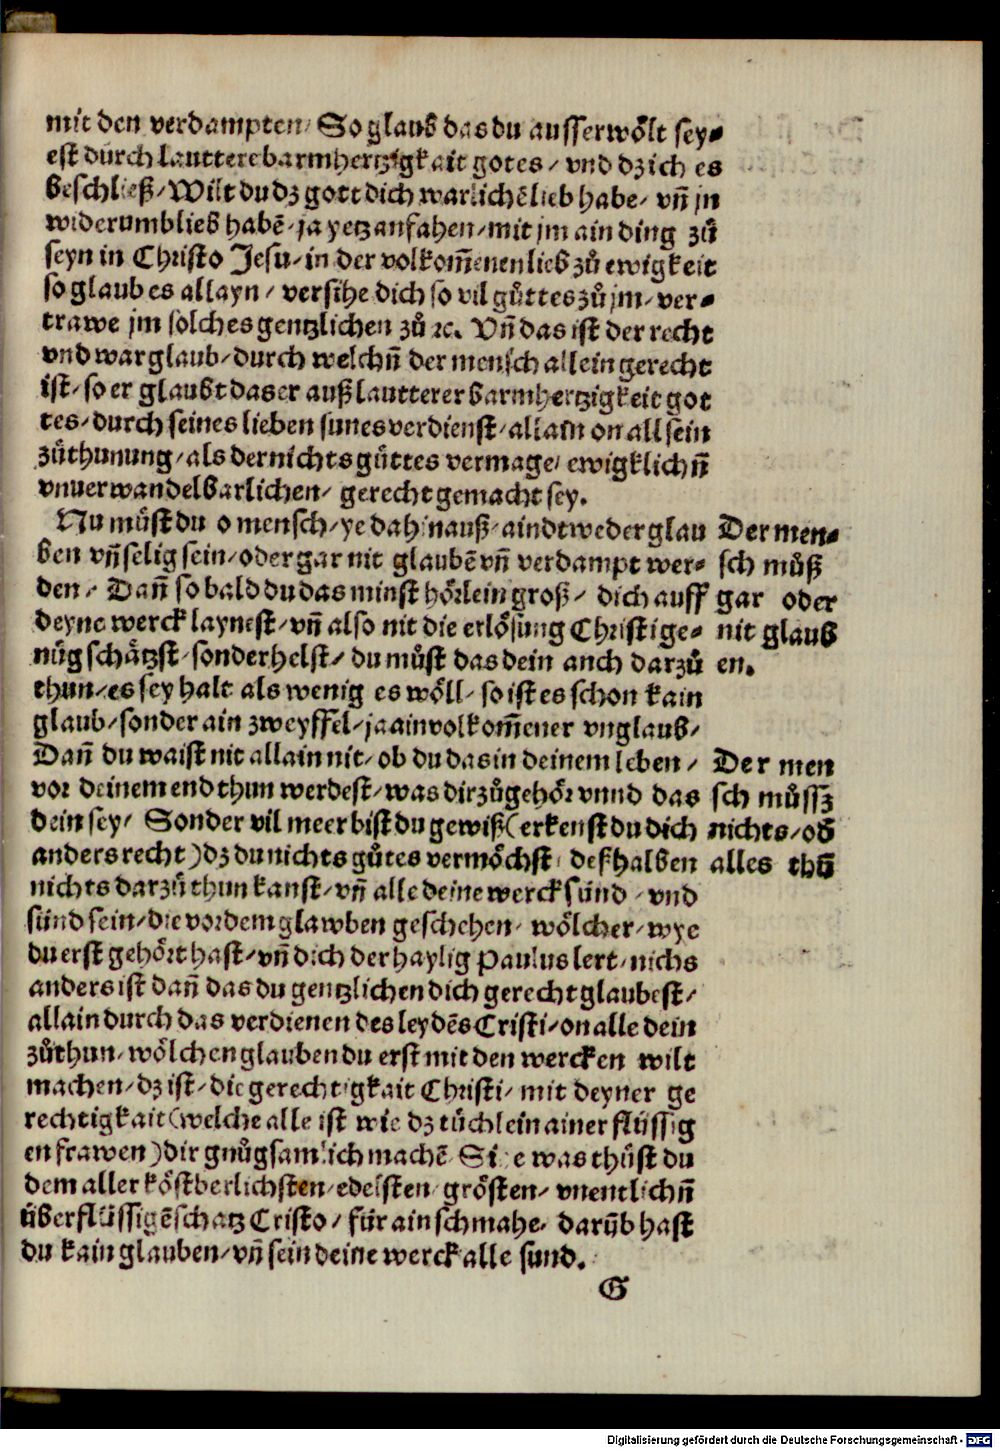 mit den verdampten/ So glaub das du ausserwölt sey⸗
est durch lauttere barmhertzigkait gotes/ vnd dz ich es
beschließ/ Wilt du dz gott dich warlichē lieb habe/ vñ jn
widerumb lieb habē/ ja yetz anfahen/ mit jm ain ding zů
seyn in Christo Jesu/ in der volkom̄enen lieb zů ewigkeit
so glaub es allayn/ versihe dich so vil gůttes zů jm/ ver⸗
trawe jm solches gentzlichen zů ꝛc. Vñ das ist der recht
vnd war glaub/ durch welchñ der mensch allein gerecht
ist/ so er glaubt das er auß lautterer barmhertzigkeit got
tes/ durch seines lieben sunes verdienst/ allain on all sein
zůthunung/ als der nichts gůttes vermage/ ewigklichñ
vnuerwandelbarlichen/ gerecht gemacht sey.
Nu můst du o mensch/ ye dahinauß/ aindtweder glau
ben vñ selig sein/ oder gar nit glaubē vñ verdampt wer⸗
den/ Dañ so bald du das minst hörlein groß/ dich auff
deyne werck laynest/ vñ also nit die erlösung Christi ge⸗
nůg schätzst/ sonder helst/ du můst das dein auch darzů
thun/ es sey halt als wenig es wöll/ so ist es schon kain
glaub/ sonder ain zweyffel/ ja ain volkom̄ener vnglaub/
Dañ du waist nit allain nit/ ob du das in deinem leben/
vor deinem end thun werdest/ was dir zůgehör vnnd das
dein sey/ Sonder vil meer bist du gewiß (erkenst du dich
anders recht) dz du nichts gůtes vermöchst/ deßhalben
nichts darzů thun kanst/ vñ alle deine werck sünd/ vnd
sünd sein/ die vor dem glawben geschehen/ wölcher/ wye
du erst gehört hast/ vñ dich der haylig Paulus lert/ nichs
anders ist dañ das du gentzlichen dich gerecht glaubest/
allain durch das verdienen des leydēs Cristi/ on alle dein
zůthun/ wölchen glauben du erst mit den wercken wilt
machen/ dz ist/ die gerechtigkait Christi/ mit deyner ge
rechtigkait (welche alle ist wie dz tüchlein ainer flüssig
en frawen) dir gnůgsamlich machē Sihe was thůst du
dem aller köstberlichsten/ edelsten/ grösten/ vnentlichñ
überflüssigē schatz Cristo/ für ain schmahe/ darūb hast
du kain glauben/ vñ sein deine werck alle sund.
G
Der men⸗
sch můß
gar oder
nit glaub
en.
Der men
sch můssz
nichts/ ob
alles thů
Digitalisierung gefördert durch die Deutsche Forschungsgemeinschaft - DFG